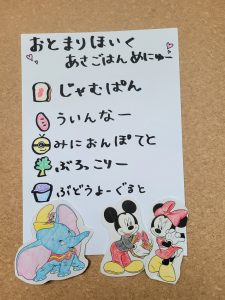 おとまりほいく
あさごはんめにゅー
じゃむぱん
ういんなー
みにおんぽてと
ぶろっこりー
ぶどうよーぐると